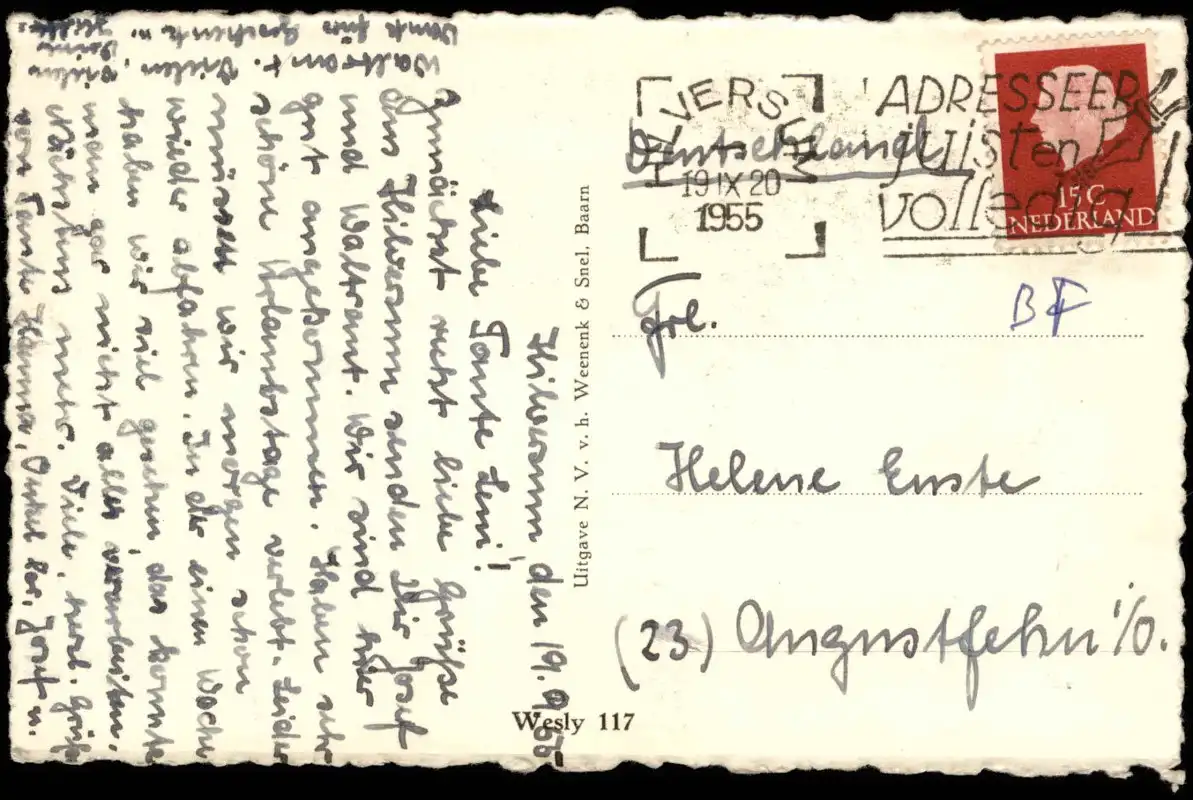 Hilversum, den 19.9.55
Liebe Tante Leni!
Zunächst recht liebe Grüße
aus Hilversum senden Dir Josef
und Waltraut. Wir sind hier
gut angekommen. Haben sehr
schöne Urlaubstage verlebt. Leider
müssen wir morgen schon
wieder abfahren. In der einen Woche
haben wir viel gesehen, das konnte
man gar nicht alles verarbeiten.
Nächstens mehr. Viele herzl. Grüße
von Tante Hanna, Onkel Jos, Josef u.
Waltraut. Vielen, vielen
Dank fürs Geschenk u.
Deine
Uitgave N. V. v. h. Weenenk & Snel, Baarn
Wesly 117
HILVERSUM
19 IX 20
1955
ADRESSEER
juisten
volledig!
15 C
NEDERLAND
Deutschland
BF
Frl.
Helene Enste
(23) Augustfehn i/O.